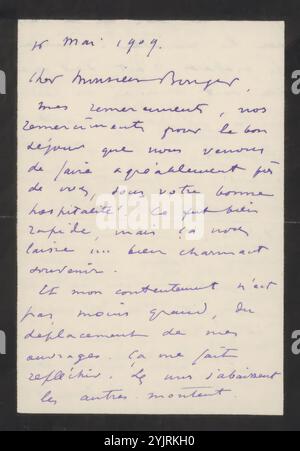 Mai 1909.
Cher Monsieur Bonger,
mes remerciements, nos
remerciments pour le bon
séjour que nous venons
de faire agréablement près
de vous, sous votre bonne
hospitalité. Ce fut bien
rapide, mais ça nous
laisse un bien charmant
souvenir.
Et mon contentement n'est
pas moins grand, du
déplacement de mes
ouvrages. Ça me fait
réfléchir. Les uns s'abaissent
les autres montent.
alamy
Image ID: 2YJRKH0
www.alamy.com